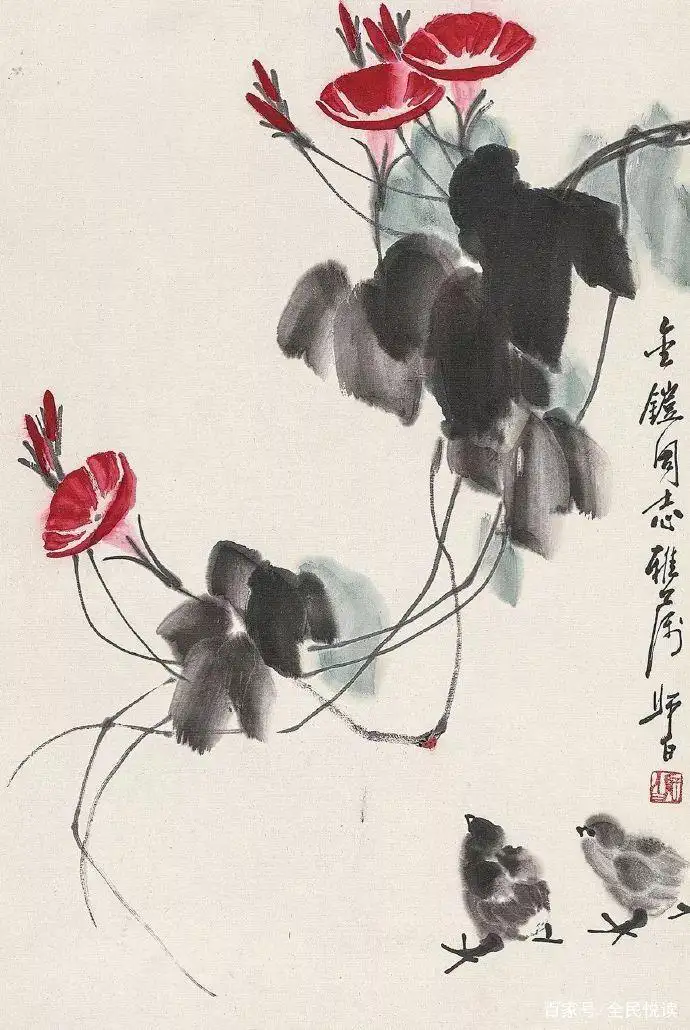 金鎧同志雅属 师白
百家号·全民悦读